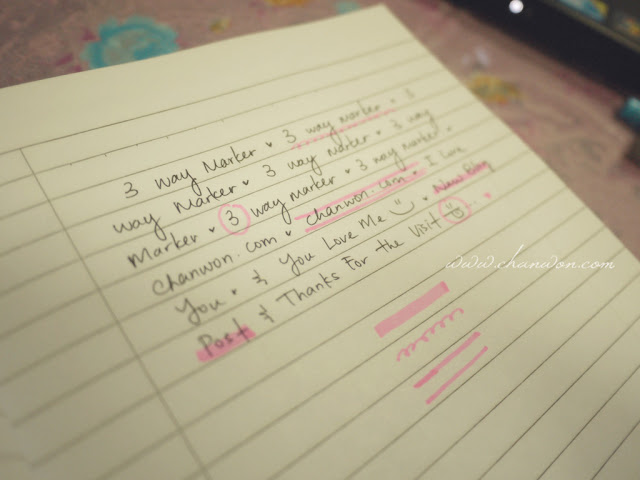 3 way Marker ♥ 3 way marker ♥ 3
way Marker ♥ 3 way Marker ♥ 3 way
Marker ♥ 3 way marker ♥ 3 way marker ♥
chanwon.com ♥ chanwon.com ♥ I Love
You ♥ & You Love Me :) ♥ New Blog
Post & Thanks For the Visit :) .. ♥
www.chanwon.com